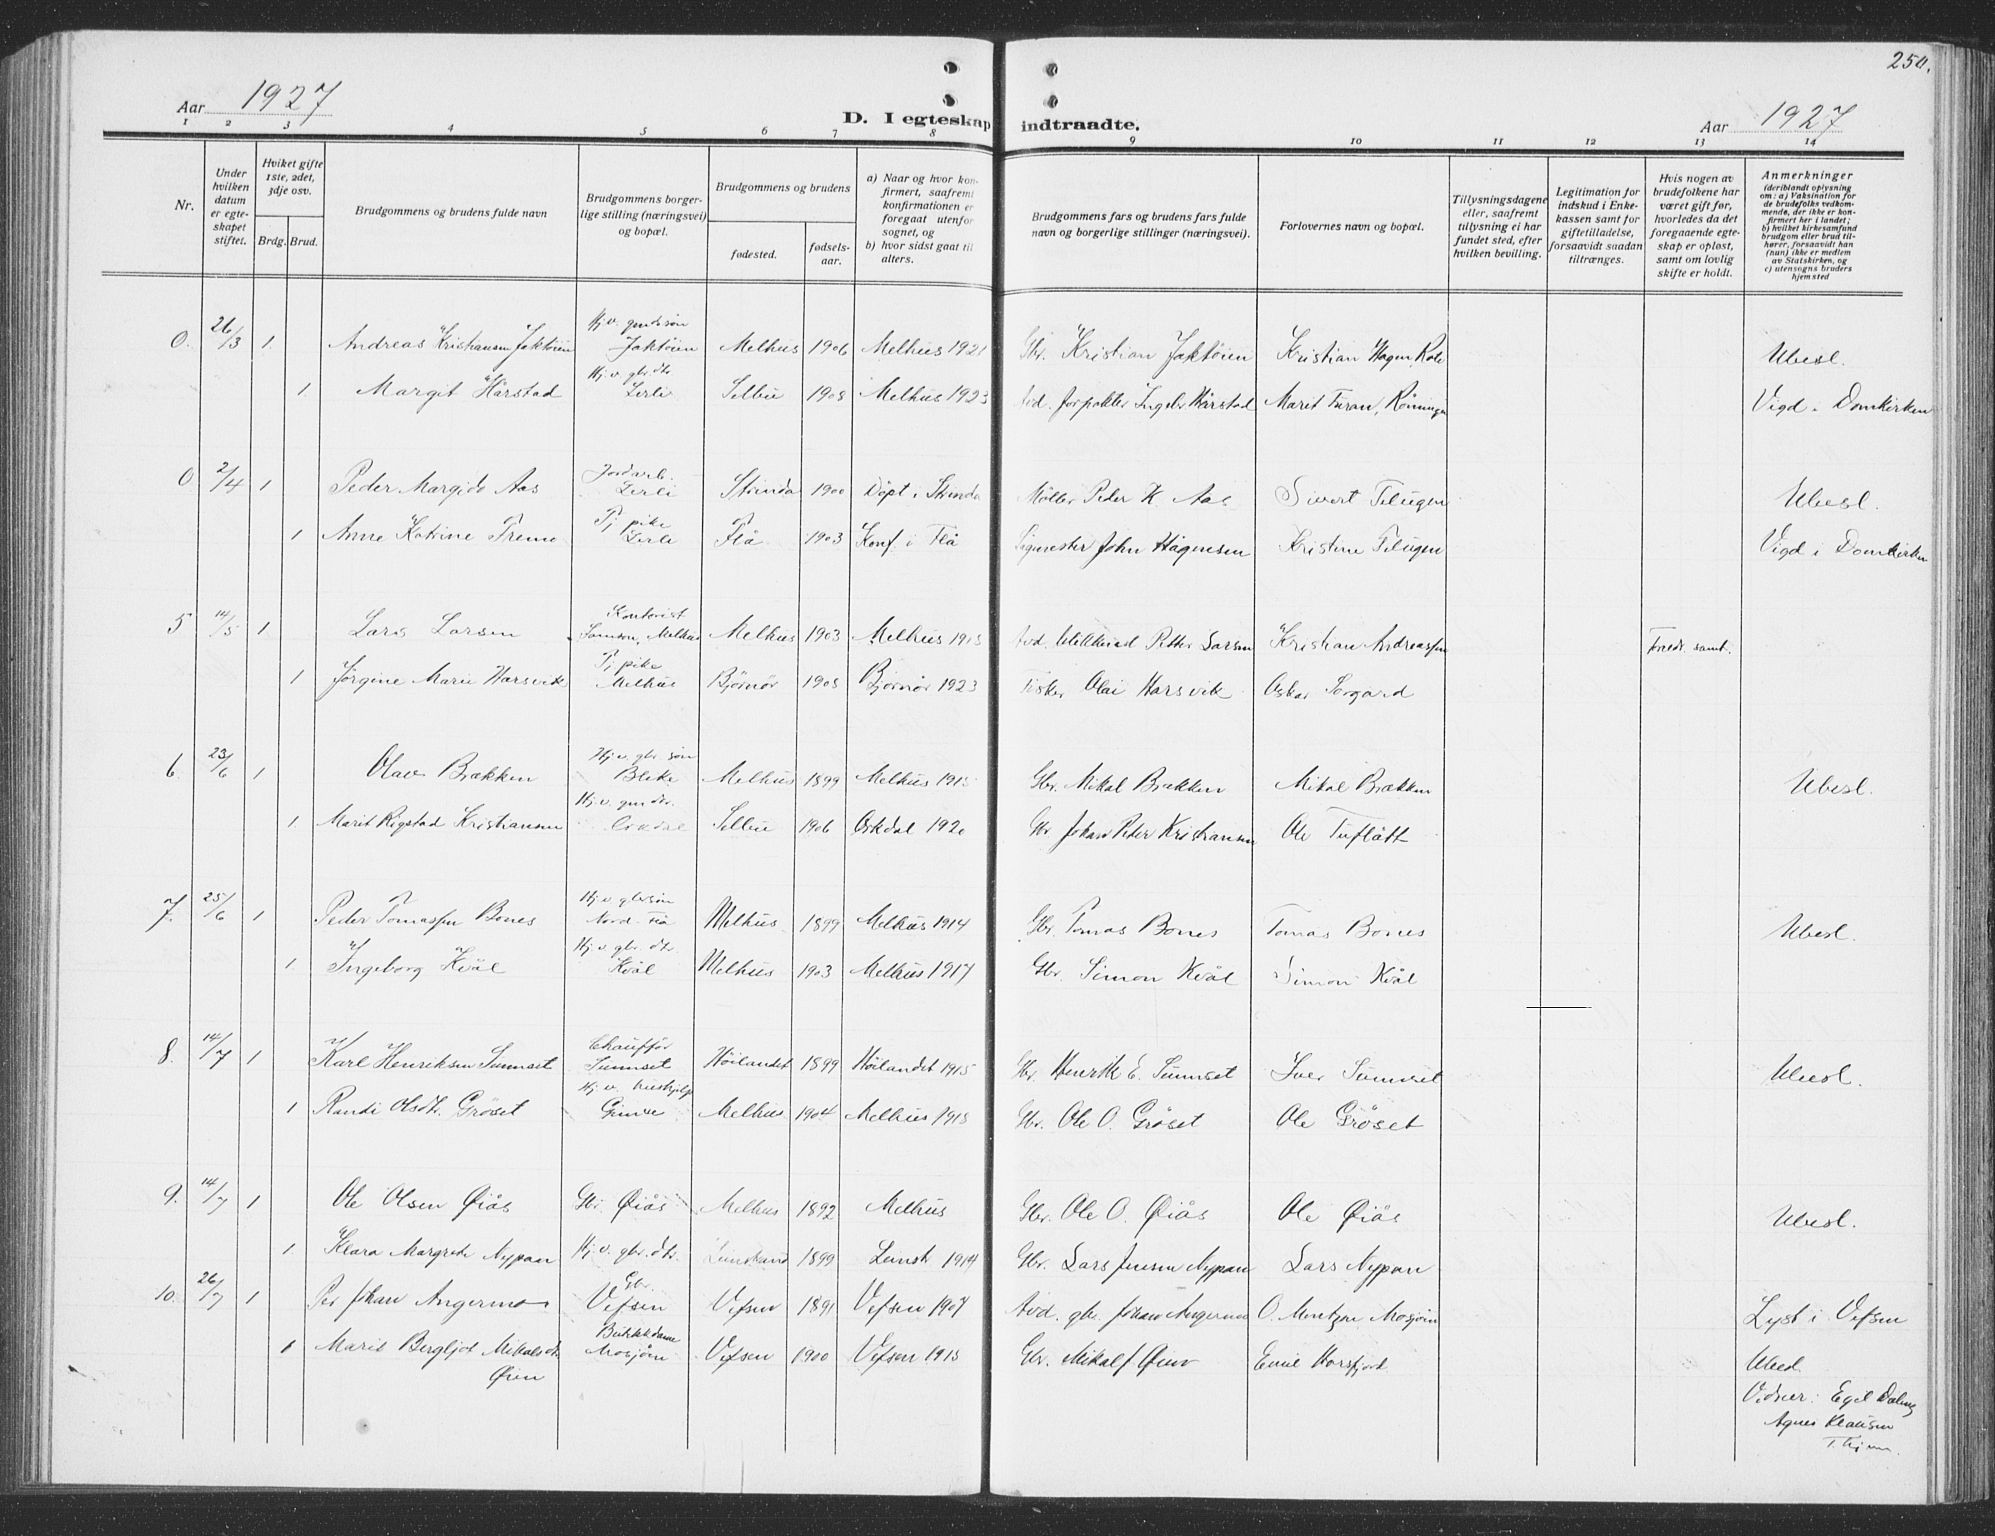 250.
Aar 1927
D. I egteskap indtraadte.
Aar 1927
1 2 3 4 5 6 7 8 9 10 11 12 13 14
Nr.
Under hvilken datum er egteskapet stiftet.
Hviket gifte 1ste, 2det, 3dje osv.
Brdg. Brud.
Brudgommens og brudens fulde navn
Brudgommens borgerlige stilling (næringsvei) og bopæl.
Brudgommens og brudens
fødested.
fødselsaar.
a) Naar og hvor konfirmert, saafremt konfirmationen er foregaat utenfor sognet, og
b) hvor sidst gaat til alters.
Brudgommens fars og brudens fars fulde navn og borgerlige stillinger (næringsvei).
Forlovernes navn og bopæl.
Tillysningsdagene eller, saafremt tillysning ei har fundet sted, efter hvilken bevilling.
Legitimation for indskud i Enkekassen samt for giftetilladelse, forsaavidt saadan tiltrænges.
Hvis nogen av brudefolkene har været gift før, hvorledes da det foregaaende egteskap er opløst, samt om lovlig skifte er holdt.
Anmerkninger
(deriblandt oplysning om: a) Vaksination for de brudefolks vedkommende, der ikke er konfirmert her i landet; b) hvilket kirkesamfund brudgom eller brud tilhører, forsaavidt han (hun) ikke er medlem av Statskirken, og c) utensogns bruders hjemsted
0. 26/3 1. Andreas Kristiansen Jaktøien Hj.v. gmds.søn Jaktøien Melhus 1906 Melhus 1921 Gbr. Kristian Jaktøien Kristian Hagen, Ubesl.
1. Margit Hårstad Hj.v. gbr.dtr. Lerli Selbu 1908 Melhus 1923 Avd. Ingebr. Hårstad Marit Vigd i Domkirken
0 2/4 1 Peder Margido Aas Jordarb. Lerli Strinda 1900 Døpt i Strinda Møller Peder K. Aas Sivert Ubesl.
1 Anne Katrine Tj.pike Lerli Flå 1903 Konf i Flå John Hågensen Kristine Vigd i Domkirken
5 14/5 1. Lars Larsen Kontorist Melhus Melhus 1903 Melhus Avd. Petter Larsen Kristian Andreassen
1 Jørgine Marie Harsvik Tj.pike Melhus Bjørnør 1905 Bjørnør 1923 Fisker Olai Harsvik Oskar Sorgard
6. 23/6 1 Olav Brækken Hj.v. gbr.søn Melhus 1899 Melhus 1915 Gbr. Mikal Brækken Mikal Brækken Ubesl.
1. Marit Rigstad Kristiansen Hj.v. gm.dtr. Selbu 1906 Gbr Johan Peter Kristiansen Ole Tuflått
7. 25/6 1 Peder Tomassen Bones Hj.v. gbrsøn Nord-Flå Melhus 1899 Melhus 1914 Gbr. Tomas Bones Tomas Bones Ubesl.
1. Ingeborg Kvål Hj.v. gbr.dtr. Kvål Melhus 1903 Melhus 1917 Gbr. Simon Kvål Simon Kvål
8. 14/7 1 Karl Henriksen Chauffør Høilandet 1899 Høilandet 1915 Gbr. Henrik E. Iver Ubesl.
1 Randi Olsdtr. Grøset Hj.v. hushjelp Gimse Melhus 1904 Melhus Gbr. Ole O. Grøset Ole Grøset
9. 14/7 1 Ole Olsen Øiås Gbr. Øiås Melhus 1892 Melhus Gbr. Ole O. Øiås Ole Øiås Ubesl.
1. Klara Margrete Nypan Hj.v. gbr.dtr. Leinstrand 1899 Leinstr 1914 Gbr. Lars Jensen Nypan Lars Nypan
10. 26/7 1 Per Johan Angermo Gbr. Vefsen Vefsen 1891 Vefsen 1907 Avd. gbr. Johan Angermo O. Mosjøen Lyst i Vefsen
1 Marit Bergljot Mikalsdtr Øien Mosjøen Vefsen 1900 Vefsen 1915 Gbr. Emil Ubesl.
Vidner: Egil
Agnes Klausen